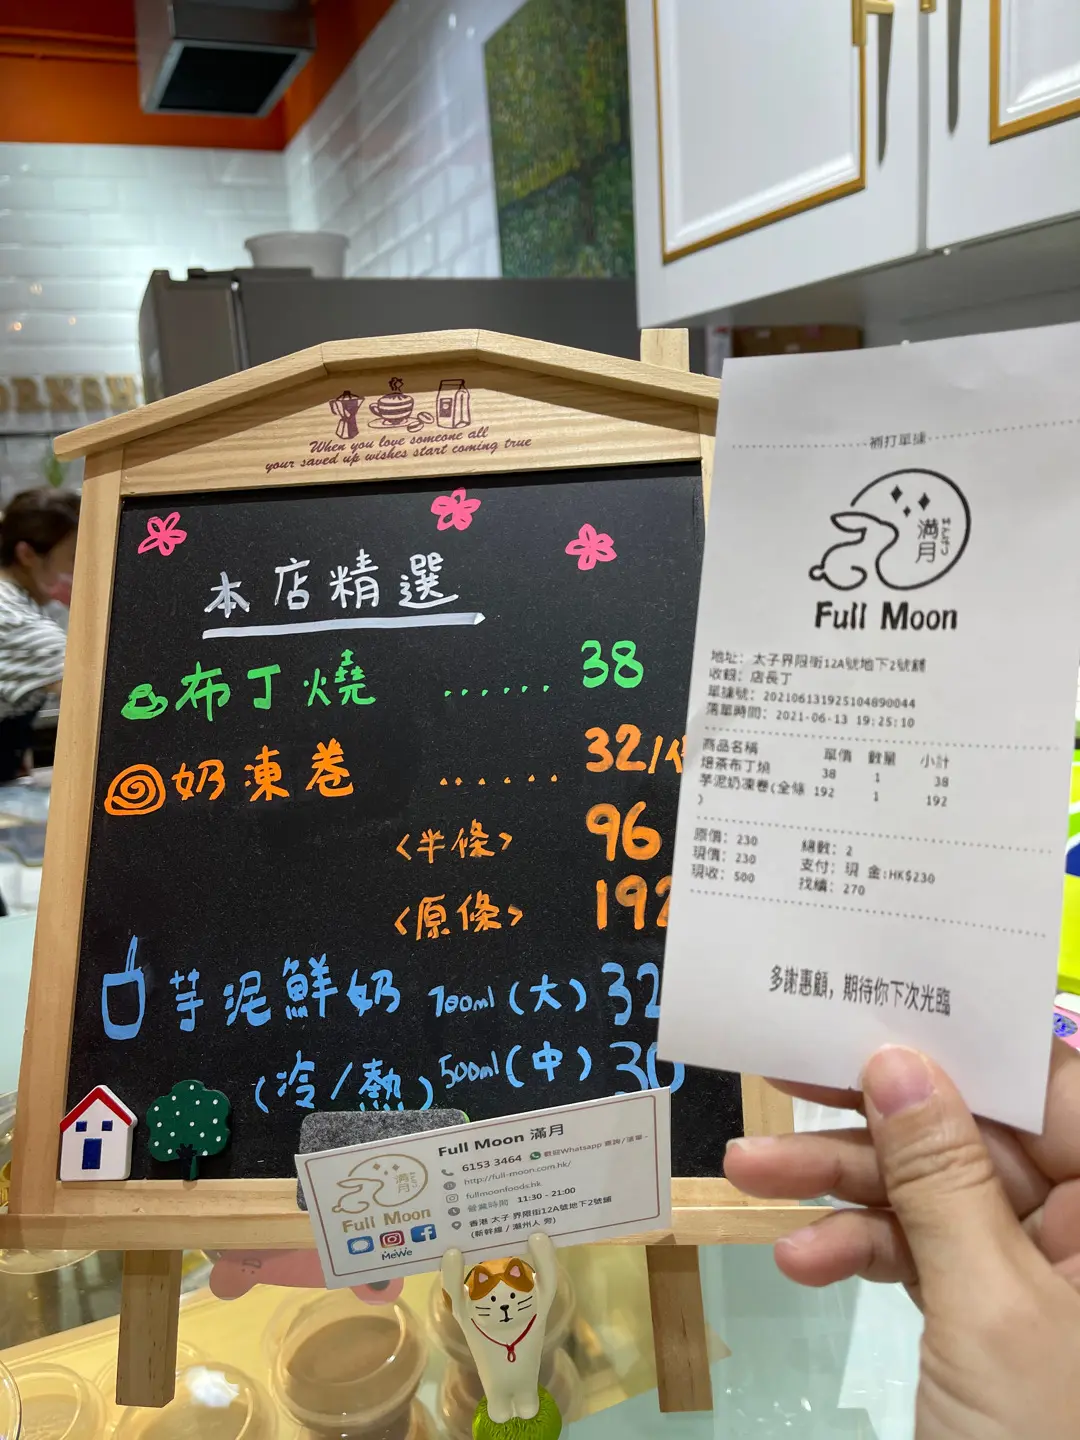 When you love someone all
your saved up wishes start coming true
本店精選
布丁燒 ...... 38
奶凍卷 ...... 32/
<半條> 96
<原條> 192
芋泥鮮奶 700ml (大) 32
(冷/熱) 500ml (中) 30
Full Moon 滿月
6153 3464 歡迎Whatsapp 查詢/落單~
http://full-moon.com.hk/
fullmoonfoods.hk
營業時間 11:30 - 21:00
香港 太子 界限街12A號地下2號舖
(新幹線 / 潮州人 旁)
滿月
Full Moon
MeWe
補打單據
滿月
まんげつ
Full Moon
地址: 太子界限街12A號地下2號舖
收銀: 店長丁
單據號: 202106131925104890044
落單時間: 2021-06-13 19:25:10
商品名稱 單價 數量 小計
焙茶布丁燒 38 1 38
芋泥奶凍卷(全條 192 1 192
)
原價: 230 總數: 2
現價: 230 支付: 現 金:HK$230
現收: 500 找續: 270
多謝惠顧, 期待你下次光臨